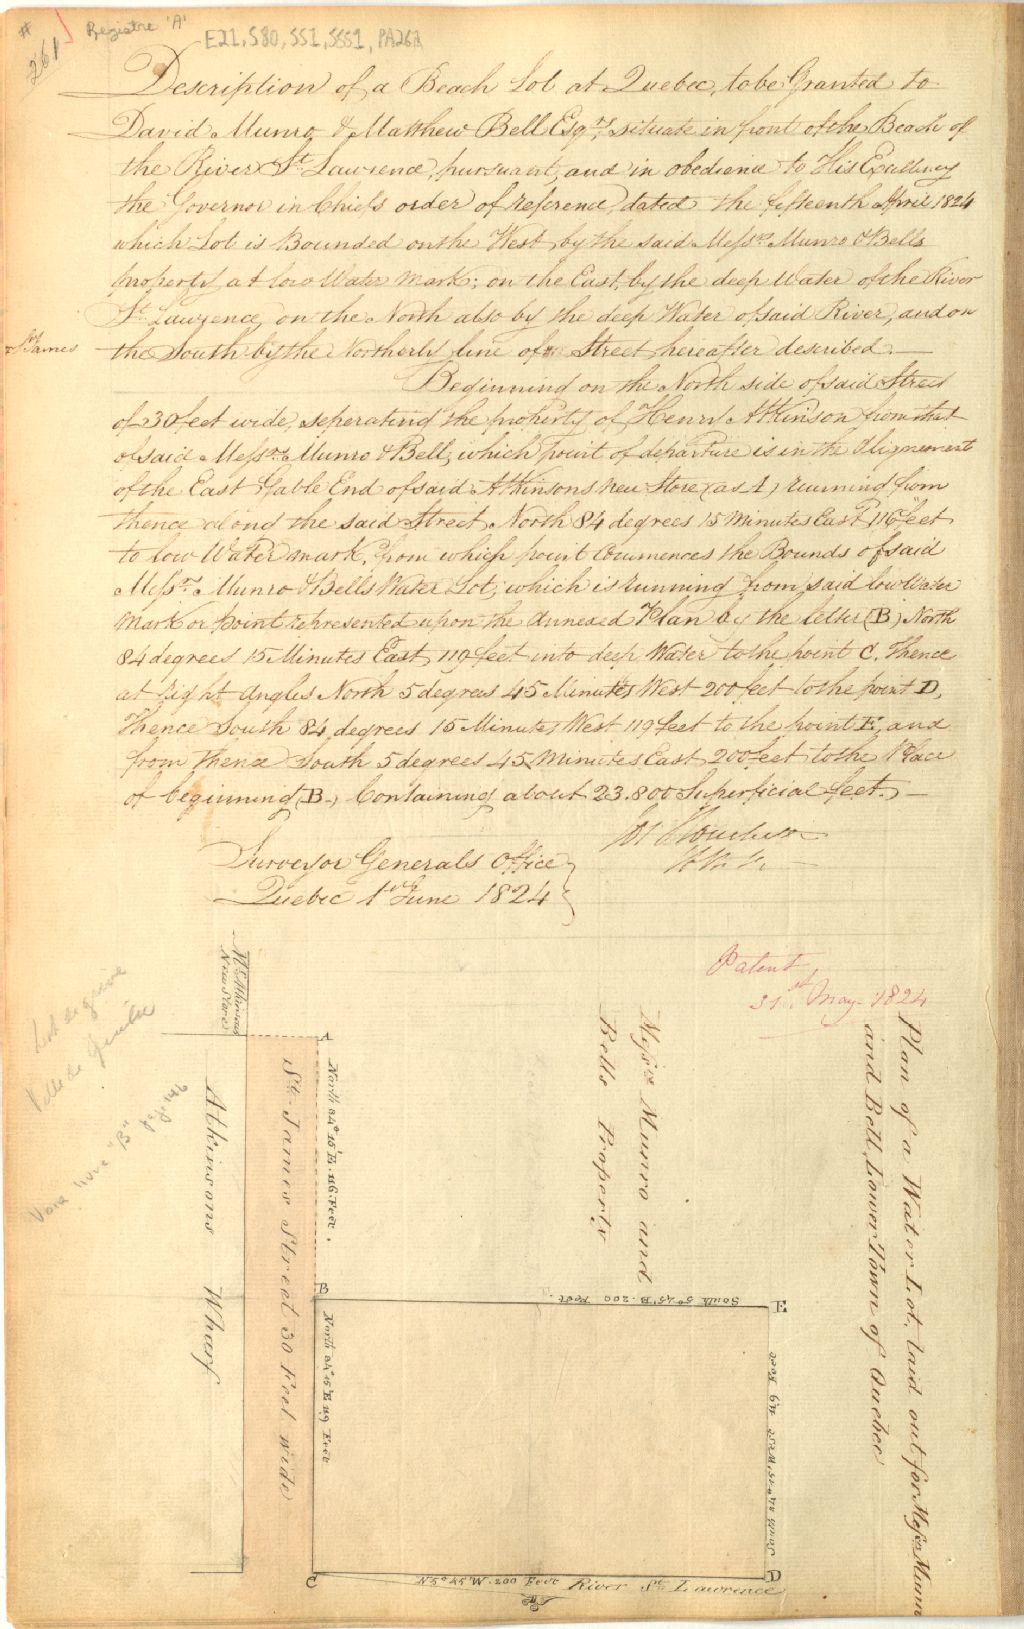 # 261
Registre 'A'
E21,S80,SS1,SSS1,PA261
Description of a Beach Lot at Quebec, to be Granted to
David Munro & Matthew Bell Esqrs, situate in front of the Beach of
the River St Lawrence, pursuant, and in obedience to His Excellency
the Governor in Chiefs order of reference, dated the fifteenth April 1824
which Lot is Bounded on the West, by the said Messrs Munro & Bells
property at low Water mark; on the East, by the deep Water of the River
St Lawrence, on the North also by the deep Water of said River, and on
St James
the South by the Northerly line of Street, hereafter described.—
Beginning on the North side of said Street
of 30 feet wide, seperating the property of Henry Atkinson from that
of said Messrs Munro & Bell, which point of departure is in the Alignement
of the East Gable End of said Atkinsons new Store (as A) running from
thence along the said Street, North 84 degrees 15 Minutes East, 116 feet
to low Water mark, from which point commences the Bounds of said
Messrs Munro & Bells Water Lot, which is running from said low Water
Mark or point represented upon the annexed Plan by the letter (B) North
84 degrees 15 Minutes East, 119 feet into deep Water to the point C. Thence
at right Angles North 5 degrees 45 Minutes West 200 feet to the point D,
Thence South 84 degrees 15 Minutes West 119 feet to the point E, and
from thence South 5 degrees 45 Minutes East 200 feet to the Place
of beginning (B.) Containing about 23.800 Superficial feet.—
Surveyor Generals Office
Quebec 1st June 1824
Patent,
31st May 1824
Ville de Québec
Voir livre "B" page 146
Mr Atkinsons
New Store
Atkinsons Wharf
St. James Street 30 Feet wide
A
North 84° 15' E. 116 Feet.
B
North 84° 15' E 119 Feet
Messrs Munro and
Bells Property
South 5° 45' E. 200 Feet.
E
South 84° 15' West 119 Feet
C
N 5° 45' W. 200 Feet
River St. Lawrence
D
Plan of a Water Lot, laid out for Messrs Munro
and Bell, Lower Town of Quebec